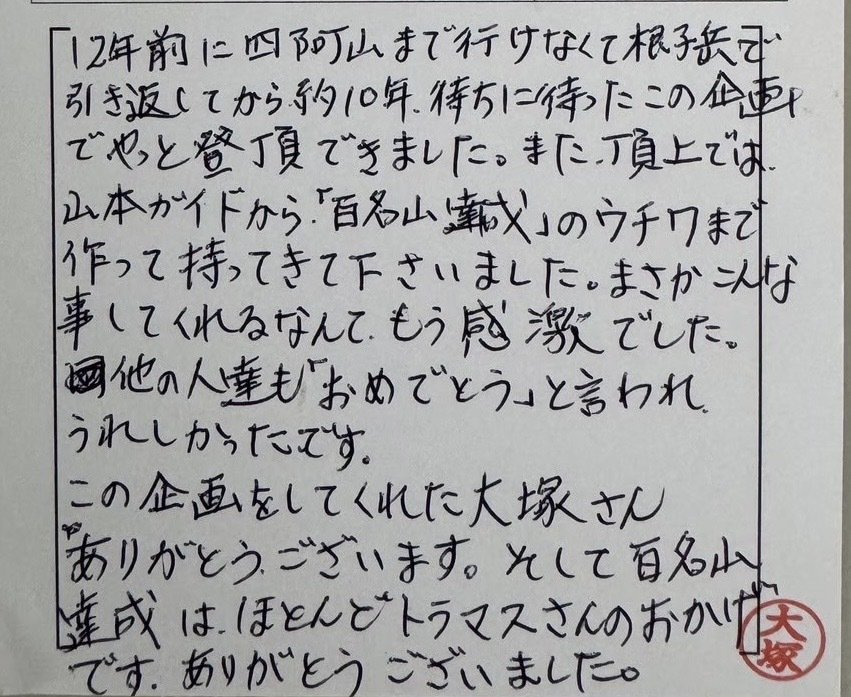 12年前に四阿山まで行けなくて根子岳で
引き返してから、約10年、待ちに待ったこの企画
でやっと登頂できました。また、頂上では、
山本ガイドから、「百名山達成」のウチワまで
作って持ってきて下さいました。まさかこんな
事してくれるなんて、もう感激でした。
他の人達も「おめでとう」と言われ、
うれしかったです。
この企画をしてくれた大塚さん
ありがとうございます。そして百名山
達成は、ほとんどトラマスさんのおかげ
です。ありがとうございました。
大塚